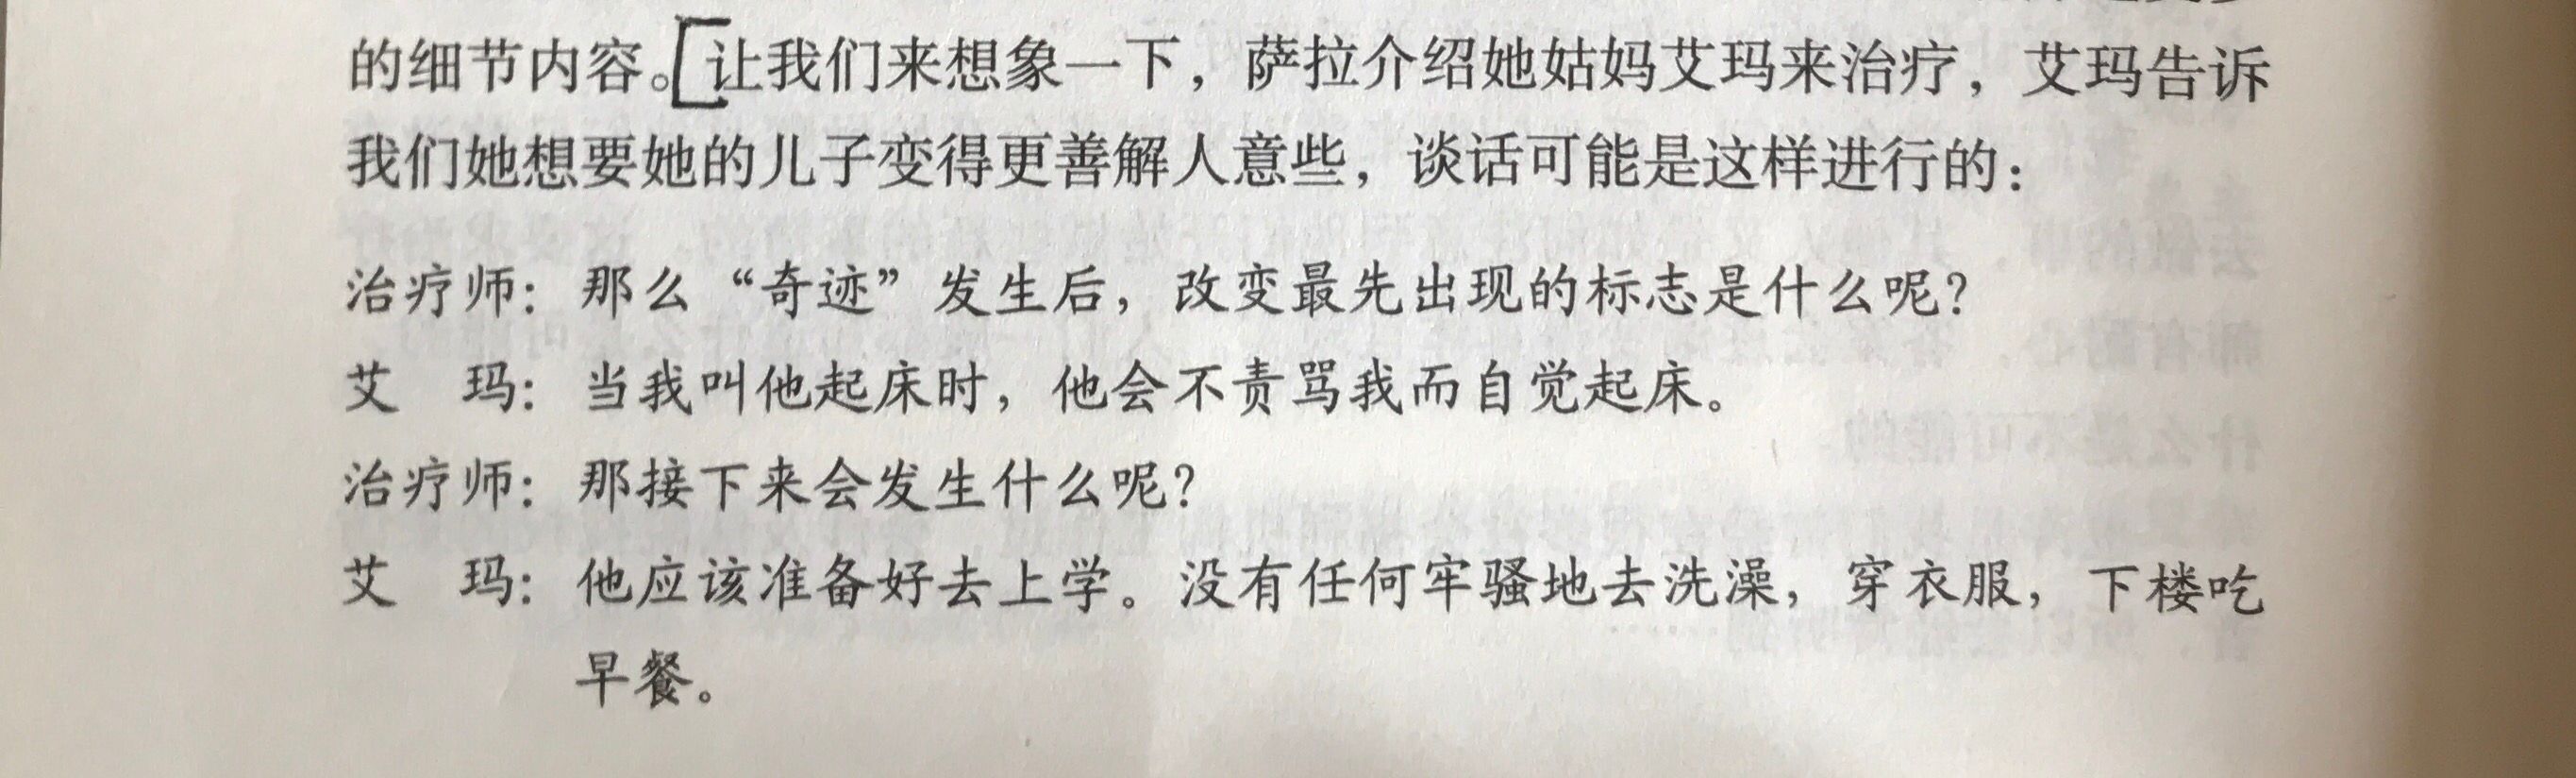 的细节内容。[让我们来想象一下，萨拉介绍她姑妈艾玛来治疗，艾玛告诉
我们她想要她的儿子变得更善解人意些，谈话可能是这样进行的：
治疗师：那么“奇迹”发生后，改变最先出现的标志是什么呢？
艾　玛：当我叫他起床时，他会不责骂我而自觉起床。
治疗师：那接下来会发生什么呢？
艾　玛：他应该准备好去上学。没有任何牢骚地去洗澡，穿衣服，下楼吃
早餐。